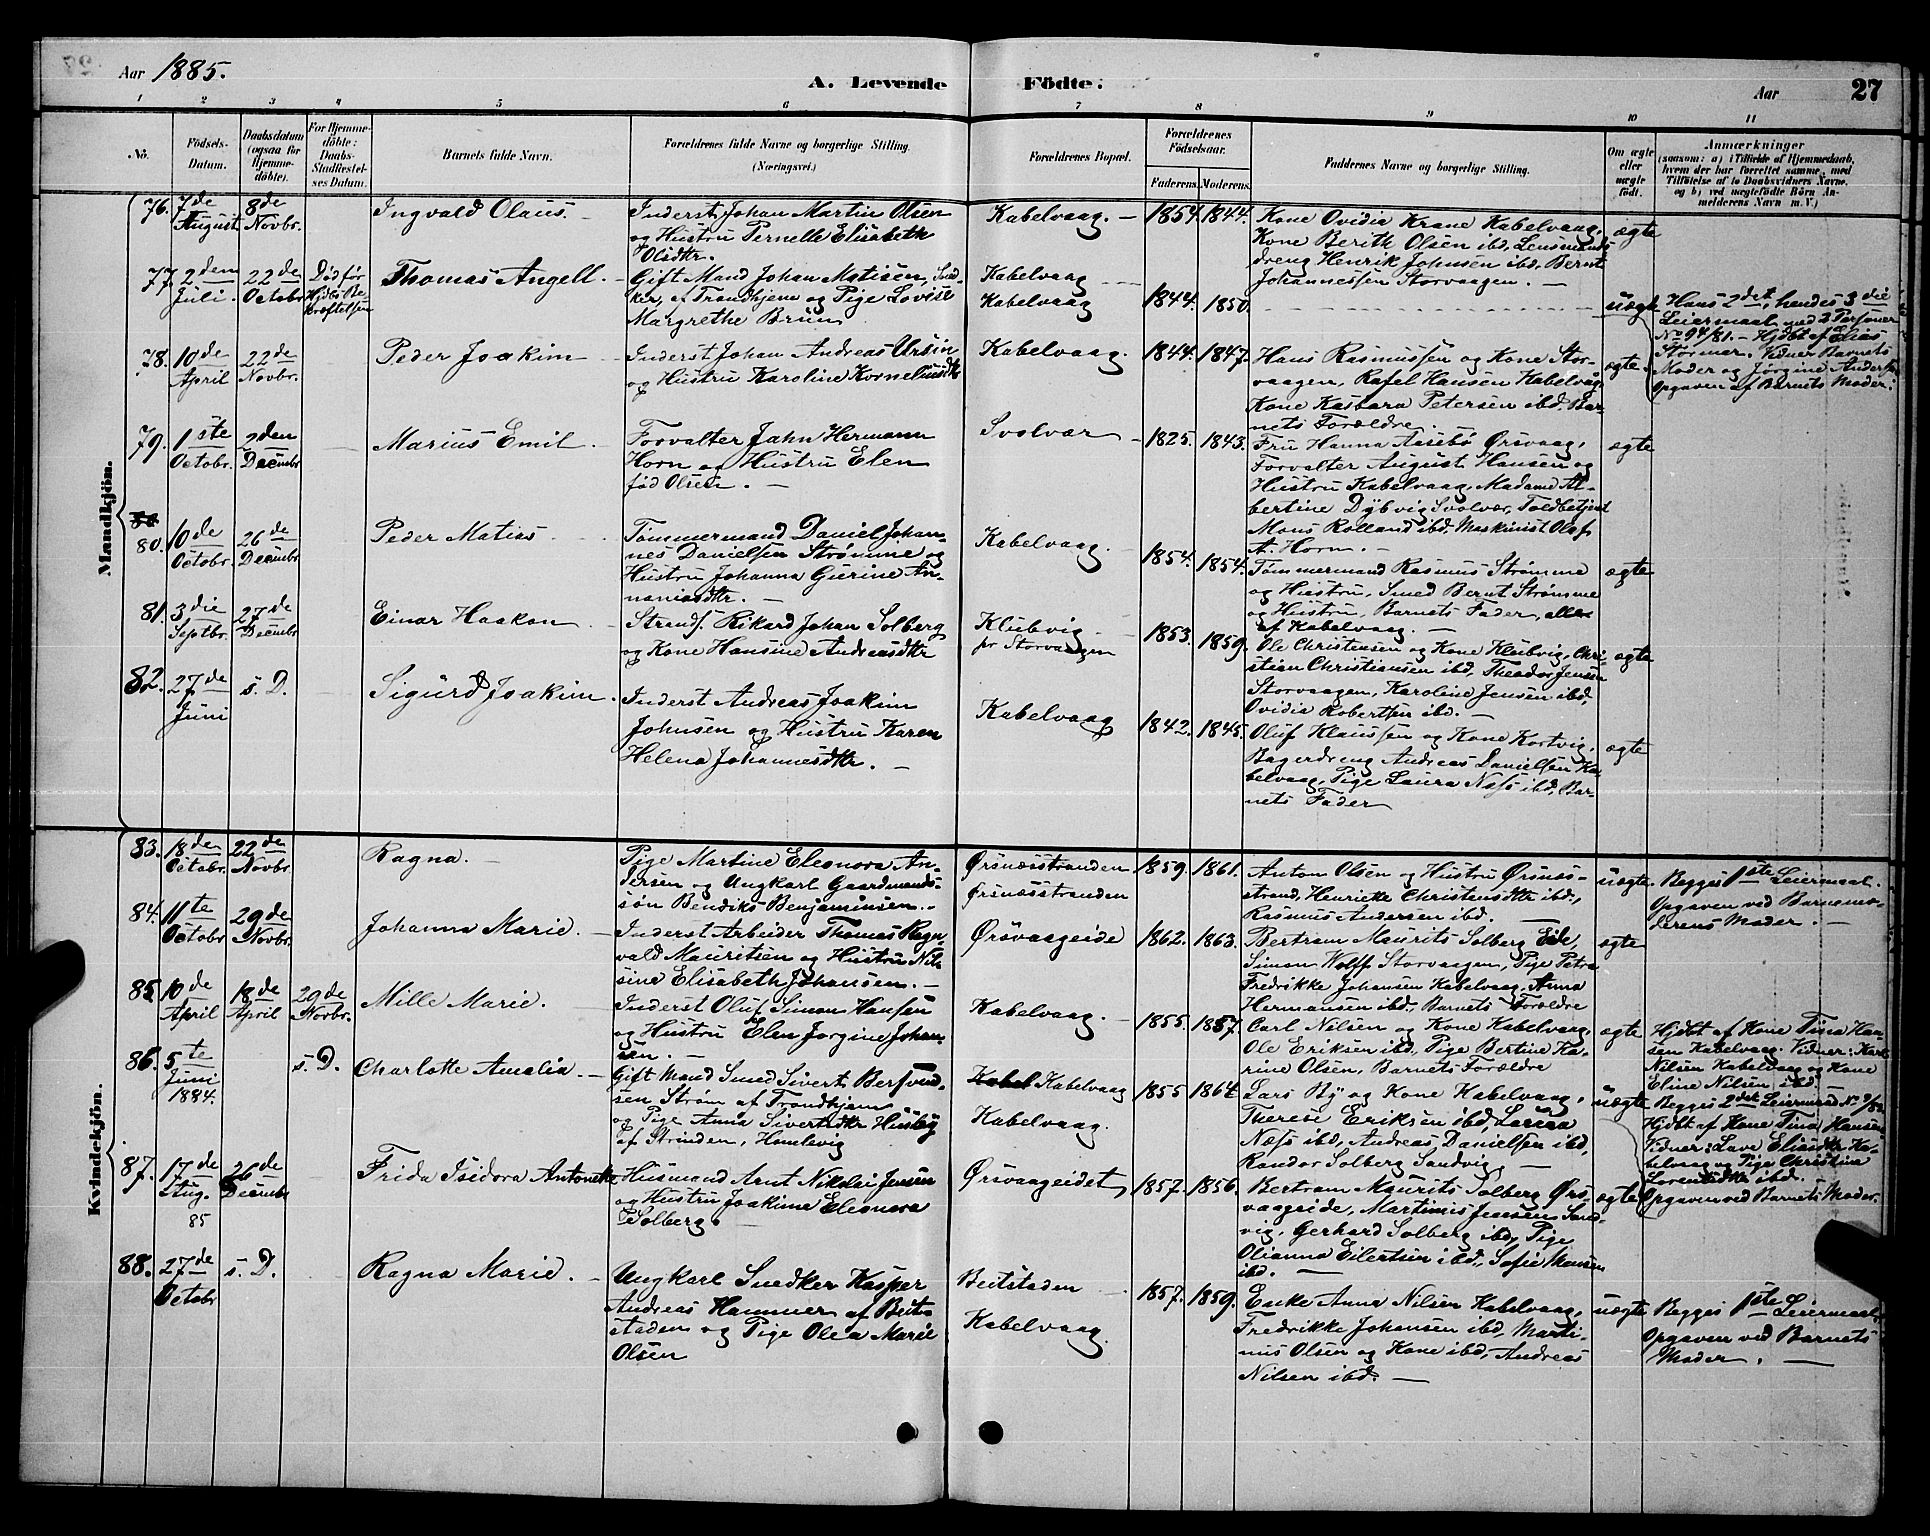 Aar 1885.
A. Levende Födte.
Aar 27
1 2 3 4 5 6 7 8 9 10 11
No.
Födsels-Datum.
Daabsdatum (ogsaa for Hjemmedöbte).
For Hjemmedöbte: Daabs-Stadfæstelses Datum.
Barnets fulde Navn.
Forældrenes fulde Navne og borgerlige Stilling. (Næringsvei.)
Forældrenes Bopæl.
Forældrenes Födselsaar.
Faderens. Moderens.
Faddernes Navne og borgerlige Stilling.
Om ægte eller uægte født.
Anmærkninger (saasom: a) i Tilfælde af Hjemmedaab, hvem der har forrettet samme, med Tilföielse af to Daabsvidners Navne, og b) ved uægtefödte Börn Anmelderens Navn m. V.)
Mandkjön.
76. 7de August 8de Novbr.
Ingvald Olaus.
Inderst Johan Martin Olsen
og Hustru Pernelle Elisabeth
Olsdtr.
Kabelvaag. 1854. 1844.
Kone Ovidia Krane Kabelvaag,
Kone Berith Olsen ibd, Lensmands
dreng Henrik Johnsen ibd, Bernt
Johannessen Storvaagen.
ægte
77. 2den Juli 22de Octobr Død før Hjdbs Bekræftelsen
Thomas Angell.
Gift Mand Johan Matisen, Sned
ker, af Trondhjem og Pige Lovise
Margrethe Brun
Kabelvaag
Kabelvaag
1844. 1850.
uægte
Hans 2det, hendes 3die
Leiermaal med 2 Personer
No 94/81. Hjdbt af Elias
Størmer. Vidner Barnets
Moder og Jørgine Andersen
Opgaven af Barnets Moder.
78. 10de April 22de Novbr.
Peder Joakim
Inderst Johan Andreas Ursin
og Hustru Karoline Korneliusdtr
Kabelvaag. 1844. 1847.
Hans Rasmussen og Kone Stor-
vaagen, Rafel Hansen Kabelvaag,
Kone Kasbara Petersen ibd, Bar-
nets Forældre.
ægte.
79. 1ste Octobr. 2den Decmbr
Marius Emil
Forvalter Jahn Hermann
Horn og Hustru Elen
fød Olsen.
Svolvær 1825. 1843.
Fru Hanna Aasebø Ørsvaag,
Forvalter August Hansen og
Hustru Kabelvaag, Madame Al-
bertine Dybvig Svolvær, Toldbetjent
Mons Rolland ibd, Maskinist Olaf
A. Horn.
ægte
80. 10de Octobr. 26de Decmbr
Peder Matias
Tømmermand Daniel Johan-
nes Danielsen Strømme og
Hustru Johanna Gurine An-
naniasdtr.
Kabelvaag. 1854. 1854.
Tømmermand Rasmus Strømme
og Hustru, Smed Bernt Strømme
og Hustru, Barnets Fader, alle
af Kabelvaag.
ægte
81. 3die Septbr. 27de Decmbr
Einar Haakon
Strands. Rikard Johan Solberg
og Kone Hansine Andreasdtr
Klubvig
pr Storvaagen
1853. 1859.
Ole Christensen og Kone Klubvig, Chri-
stian Christiansen ibd, Theodor Jensen
Storvaagen, Karoline Jensen ibd,
Ovidia Robertsen ibd.
ægte
82. 27de Juni s. D.
Sigurd Joakim.
Inderst Andreas Joakim
Johnsen og Hustru Karen
Helena Johannesdtr.
Kabelvaag 1842. 1845.
Oluf Klaussen og Kone Kortvig,
Bagerdreng Andreas Danielsen Ka-
belvaag, Pige Laura Næss ibd, Bar-
nets Fader
ægte
Kvindekjön.
83. 18de Octobr. 22de Novbr.
Ragna.
Pige Martine Eleonora An-
dersen og Ungkarl Gaardmands-
søn Bendiks Benjaminsen.
Ørsnæsstranden
Ørsnæsstranden
1859. 1861.
Anton Olsen og Hustru Ørsnæs-
strand, Henriette Christensdtr ibd,
Rasmus Andersen ibd.
uægte
Begges 1ste Leiermaal.
Opgaven ved Barnemo-
derens Moder.
84. 11te Octobr 29de Novbr.
Johanna Marie.
Inderst Arbeider Thomas Ragn
vald Mauritsen og Hustru Nil-
sine Elisabeth Johansen.
Ørsvaageide 1862. 1863.
Bertram Maurits Solberg Eide,
Simon Wolff Storvaagen, Pige Petra
Fredrikke Johansen Kabelvaag, Anna
Hermansen ibd, Barnets Forældre
ægte
85. 10de April 18de April 29de Novbr.
Mille Marie.
Inderst Oluf Simon Hansen
og Hustru Elen Jorgine Johan-
sen.
Kabelvaag. 1855. 1857.
Carl Nilsen og Kone Kabelvaag,
Ole Eriksen ibd, Pige Bertine Ka-
rine Olsen, Barnets Forældre
ægte
Hjdbt af Kone Tina Han-
sen Kabelvaag. Vidner: Karl
Nilsen Kabelvaag og Kone
Eline Nilsen ibd.
86. 5te Juni 1884. s. D.
Charlotte Amalia.
Gift Mand Smed Sivert Bersvend-
sen Strøm af Trondhjem
og Pige Anna Sivertsdtr Husby
af Strinden, Humlevig
Kabelvaag
Kabelvaag.
1855 1864
Lars By og Kone Kabelvaag,
Therese Eriksen ibd, Laura
Næss ibd, Andreas Danielsen ibd,
Randor Solberg Sandvig.
uægte
Begges 2det Leiermaal
Hjdbt af Kone Tina Hansen
Vidner: Lave Eliasdtr Ka-
belvaag og Pige Christine
Lorentsdtr ibd.
Opgaven ved Barnets Moder.
87. 17de Aug. 85 26de Decmbr
Frida Isidora Antonette
Husmand Arnt Nikolai Jensen
og Hustru Joakime Eleonora
Solberg.
Ørsvaageidet 1857. 1856.
Bertram Maurits Solberg Ørs-
vaageide, Martinus Jensen Sand-
vig, Gerhard Solberg ibd, Pige
Olianna Eilertsen ibd., Sofie Monsen
ibd.
ægte
88. 27de Octobr s. D.
Ragna Marie.
Ungkarl Snedker Kasper
Andreas Hammer af Beits-
staden og Pige Olea Marie
Olsen
Beitstaden
Kabelvaag.
1857. 1859.
Enke Anna Nilsen Kabelvaag,
Fredrikke Johansen ibd, Marti-
nus Olsen og Kone ibd, Andreas
Nilsen ibd.
uægte
Begges 1ste Leiermaal,
Opgaven ved Barnets
Moder.